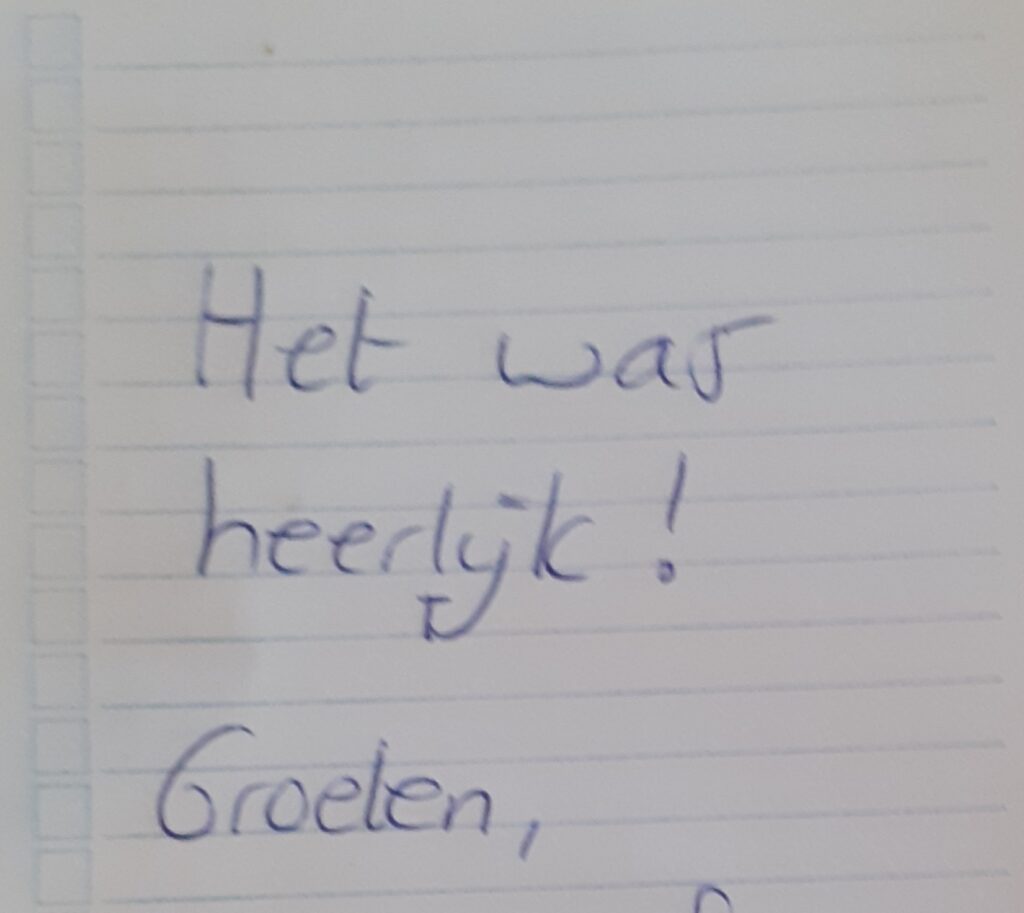 Het was
heerlijk!
Groeten,